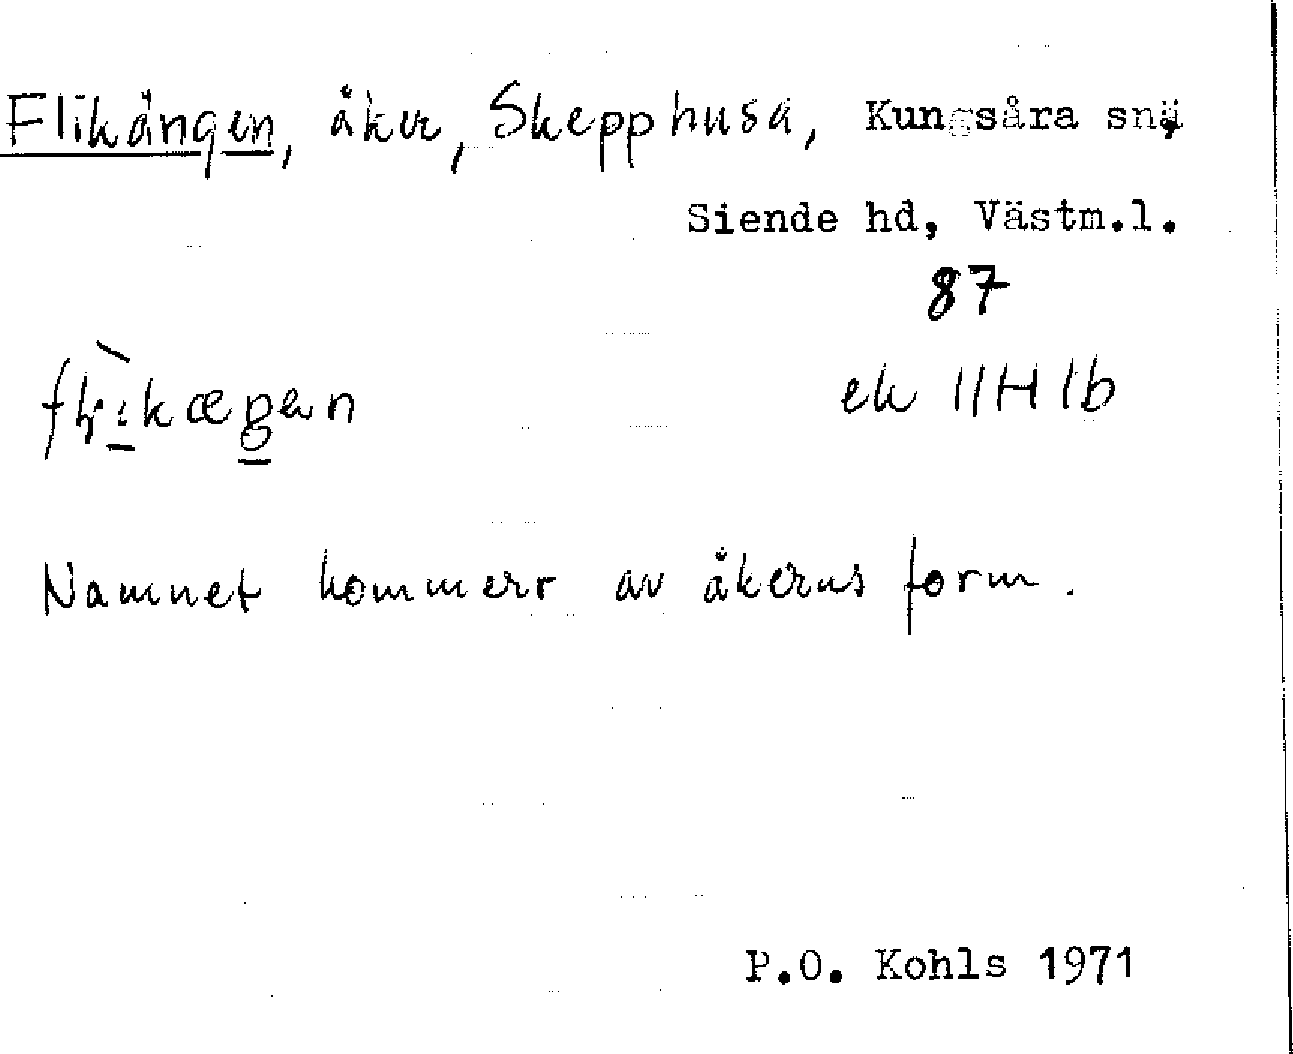 Flikängen, åker, Skepphusa, Kungsåra sn,
Siende hd, Västm.l.
87
ek 11H 1b
Namnet kommer av åkerns form.
P.O. Kohls 1971